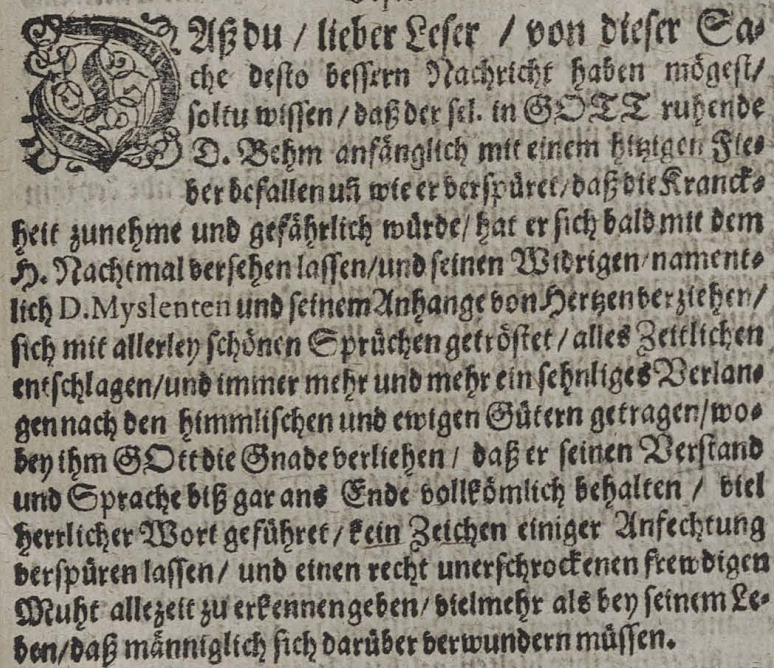 DAß du / lieber Leser / von dieser Sa-
che desto bessern Nachricht haben mögest/
soltu wissen/ daß der sel. in GOTT ruhende
D. Behm anfänglich mit einem hitzigen Fie-
ber befallen uñ wie er verspüret/ daß die Kranck-
heit zunehme und gefährlich würde/ hat er sich bald mit dem
H. Nachtmal versehen lassen/und seinen Widrigen/nament-
lich D.Myslenten und seinem Anhange von Hertzen verziehen/
sich mit allerley schönen Sprüchen getröstet/ alles Zeitlichen
entschlagen/und immer mehr und mehr ein sehnliges Verlan-
gen nach den himmlischen und ewigen Gütern getragen/wo-
bey ihm GOtt die Gnade verliehen / daß er seinen Verstand
und Sprache biß gar ans Ende vollkömlich behalten / viel
herrlicher Wort geführet/ kein Zeichen einiger Anfechtung
verspüren lassen/ und einen recht unerschrockenen frewdigen
Muht allezeit zu erkennen geben/ vielmehr als bey seinem Le-
ben/daß männiglich sich darüber verwundern müssen.